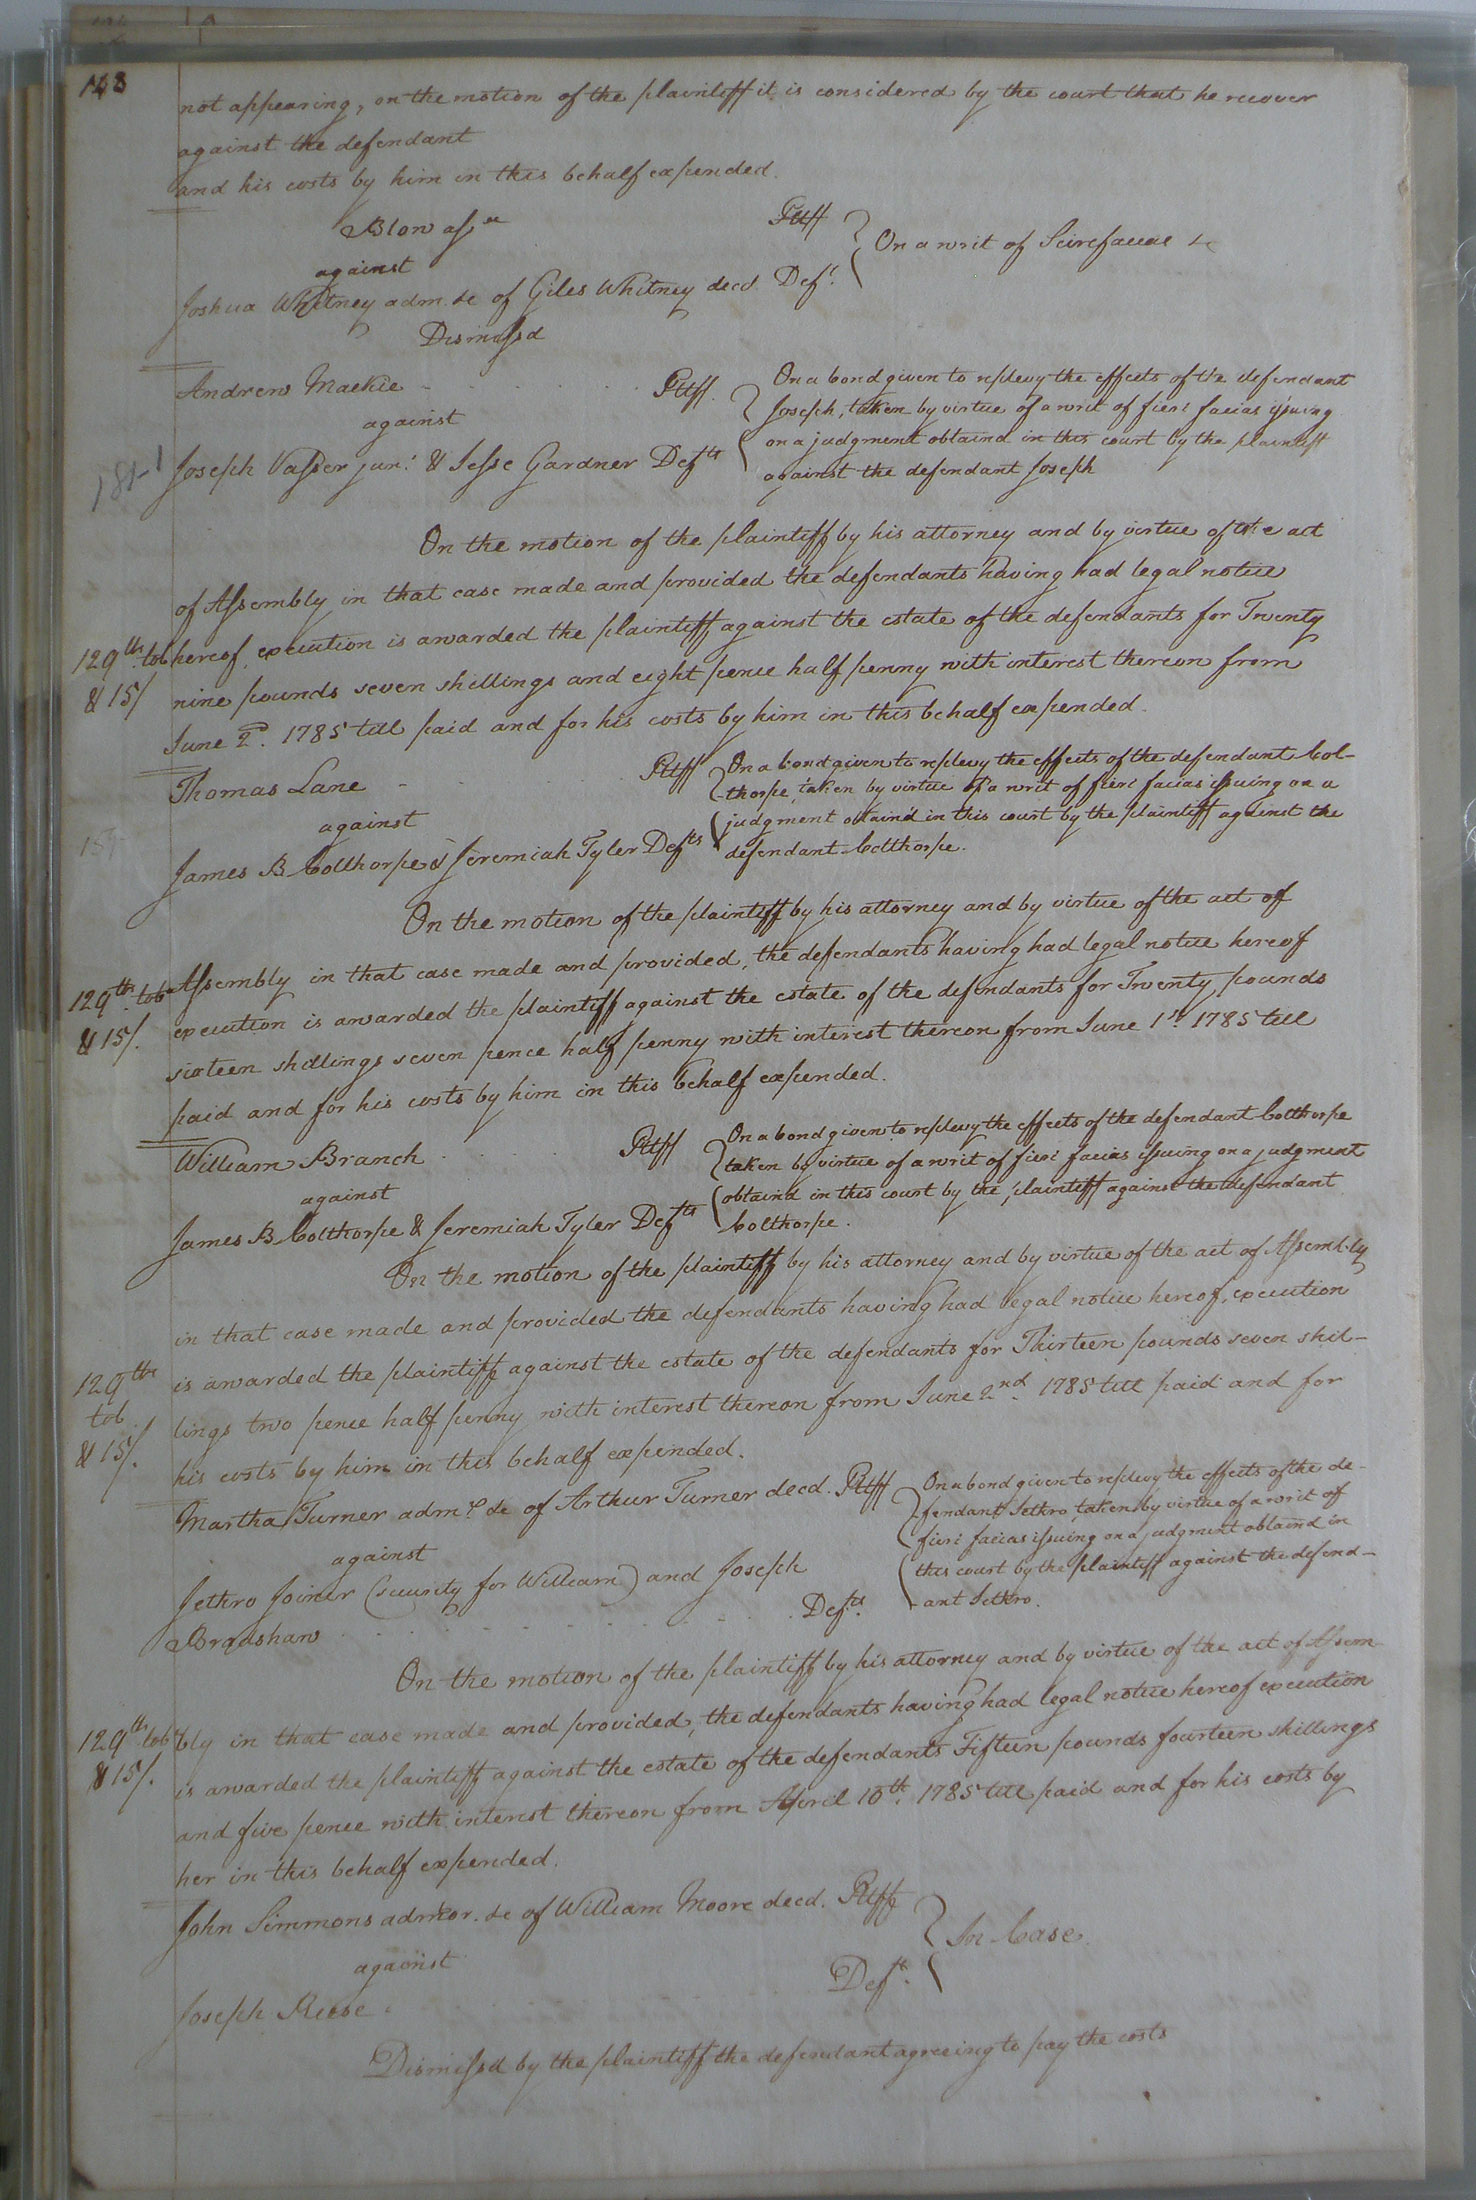 168
not appearing, on the motion of the plaintiff it is considered by the court that he recover
against the defendant
and his costs by him in this behalf expended.
Blow assee Pltff
against
On a writ of Scirefacias &c
Joshua Whitney adm. &c of Giles Whitney decd Deft.
Dismissd
Andrew Mackie Pltff.
against
Joseph Vasser junr. & Jesse Gardner Defts
On a bond given to replevy the effects of the defendant
Joseph, taken by virtue of a writ of fieri facias issuing
on a judgment obtaind in this court by the plaintiff
against the defendant Joseph
On the motion of the plaintiff by his attorney and by virtue of the act
of Assembly in that case made and provided the defendants having had legal notice
129th tob hereof, execution is awarded the plaintiff, against the estate of the defendants for Twenty
& 15/ nine pounds seven shillings and eight pence half penny with interest thereon from
June 2d. 1785 till paid and for his costs by him in this behalf expended.
Thomas Lane Pltff
against
James B Colthorpe & Jeremiah Tyler Defts
On a bond given to replevy the effects of the defendant Col-
-thorpe, taken by virtue of a writ of fieri facias issuing on a
judgment obtain'd in this court by the plaintiff against the
defendant Colthorpe.
On the motion of the plaintiff by his attorney and by virtue of the act of
129th tob Assembly in that case made and provided, the defendants having had legal notice hereof
& 15/. execution is awarded the plaintiff against the estate of the defendants for Twenty pounds
sixteen shillings seven pence half penny with interest thereon from June 1st. 1785 till
paid and for his costs by him in this behalf expended.
William Branch Pltff
against
James B Colthorpe & Jeremiah Tyler Defts
On a bond given to replevy the effects of the defendant Colthorpe
taken by virtue of a writ of fieri facias issuing on a judgment
obtaind in this court by the plaintiff against the defendant
Colthorpe.
On the motion of the plaintiff by his attorney and by virtue of the act of Assembly
in that case made and provided the defendants having had legal notice hereof, execution
129th is awarded the plaintiff against the estate of the defendants for Thirteen pounds seven shil-
tob lings two pence half penny with interest thereon from June 2nd. 1785 till paid and for
& 15/. his costs by him in this behalf expended.
Martha Turner admx &c of Arthur Turner decd. Pltff
against
Jethro Joiner (security for William) and Joseph
Bradshaw Defts.
On a bond given to replevy the effects of the de-
fendant Jethro, taken by virtue of a writ of
fieri facias issuing on a judgment obtaind in
this court by the plaintiff against the defend-
-ant Jethro.
On the motion of the plaintiff by his attorney and by virtue of the act of Assem-
129th tob bly in that case made and provided, the defendants having had legal notice hereof execution
& 15/. is awarded the plaintiff against the estate of the defendants Fifteen pounds fourteen shillings
and five pence with interest thereon from April 10th. 1785 till paid and for his costs by
her in this behalf expended.
John Simmons admor. &c of William Moore decd. Pltff
against
In Case
Joseph Reese Deft.
Dismissd by the plaintiff the defendant agreeing to pay the costs